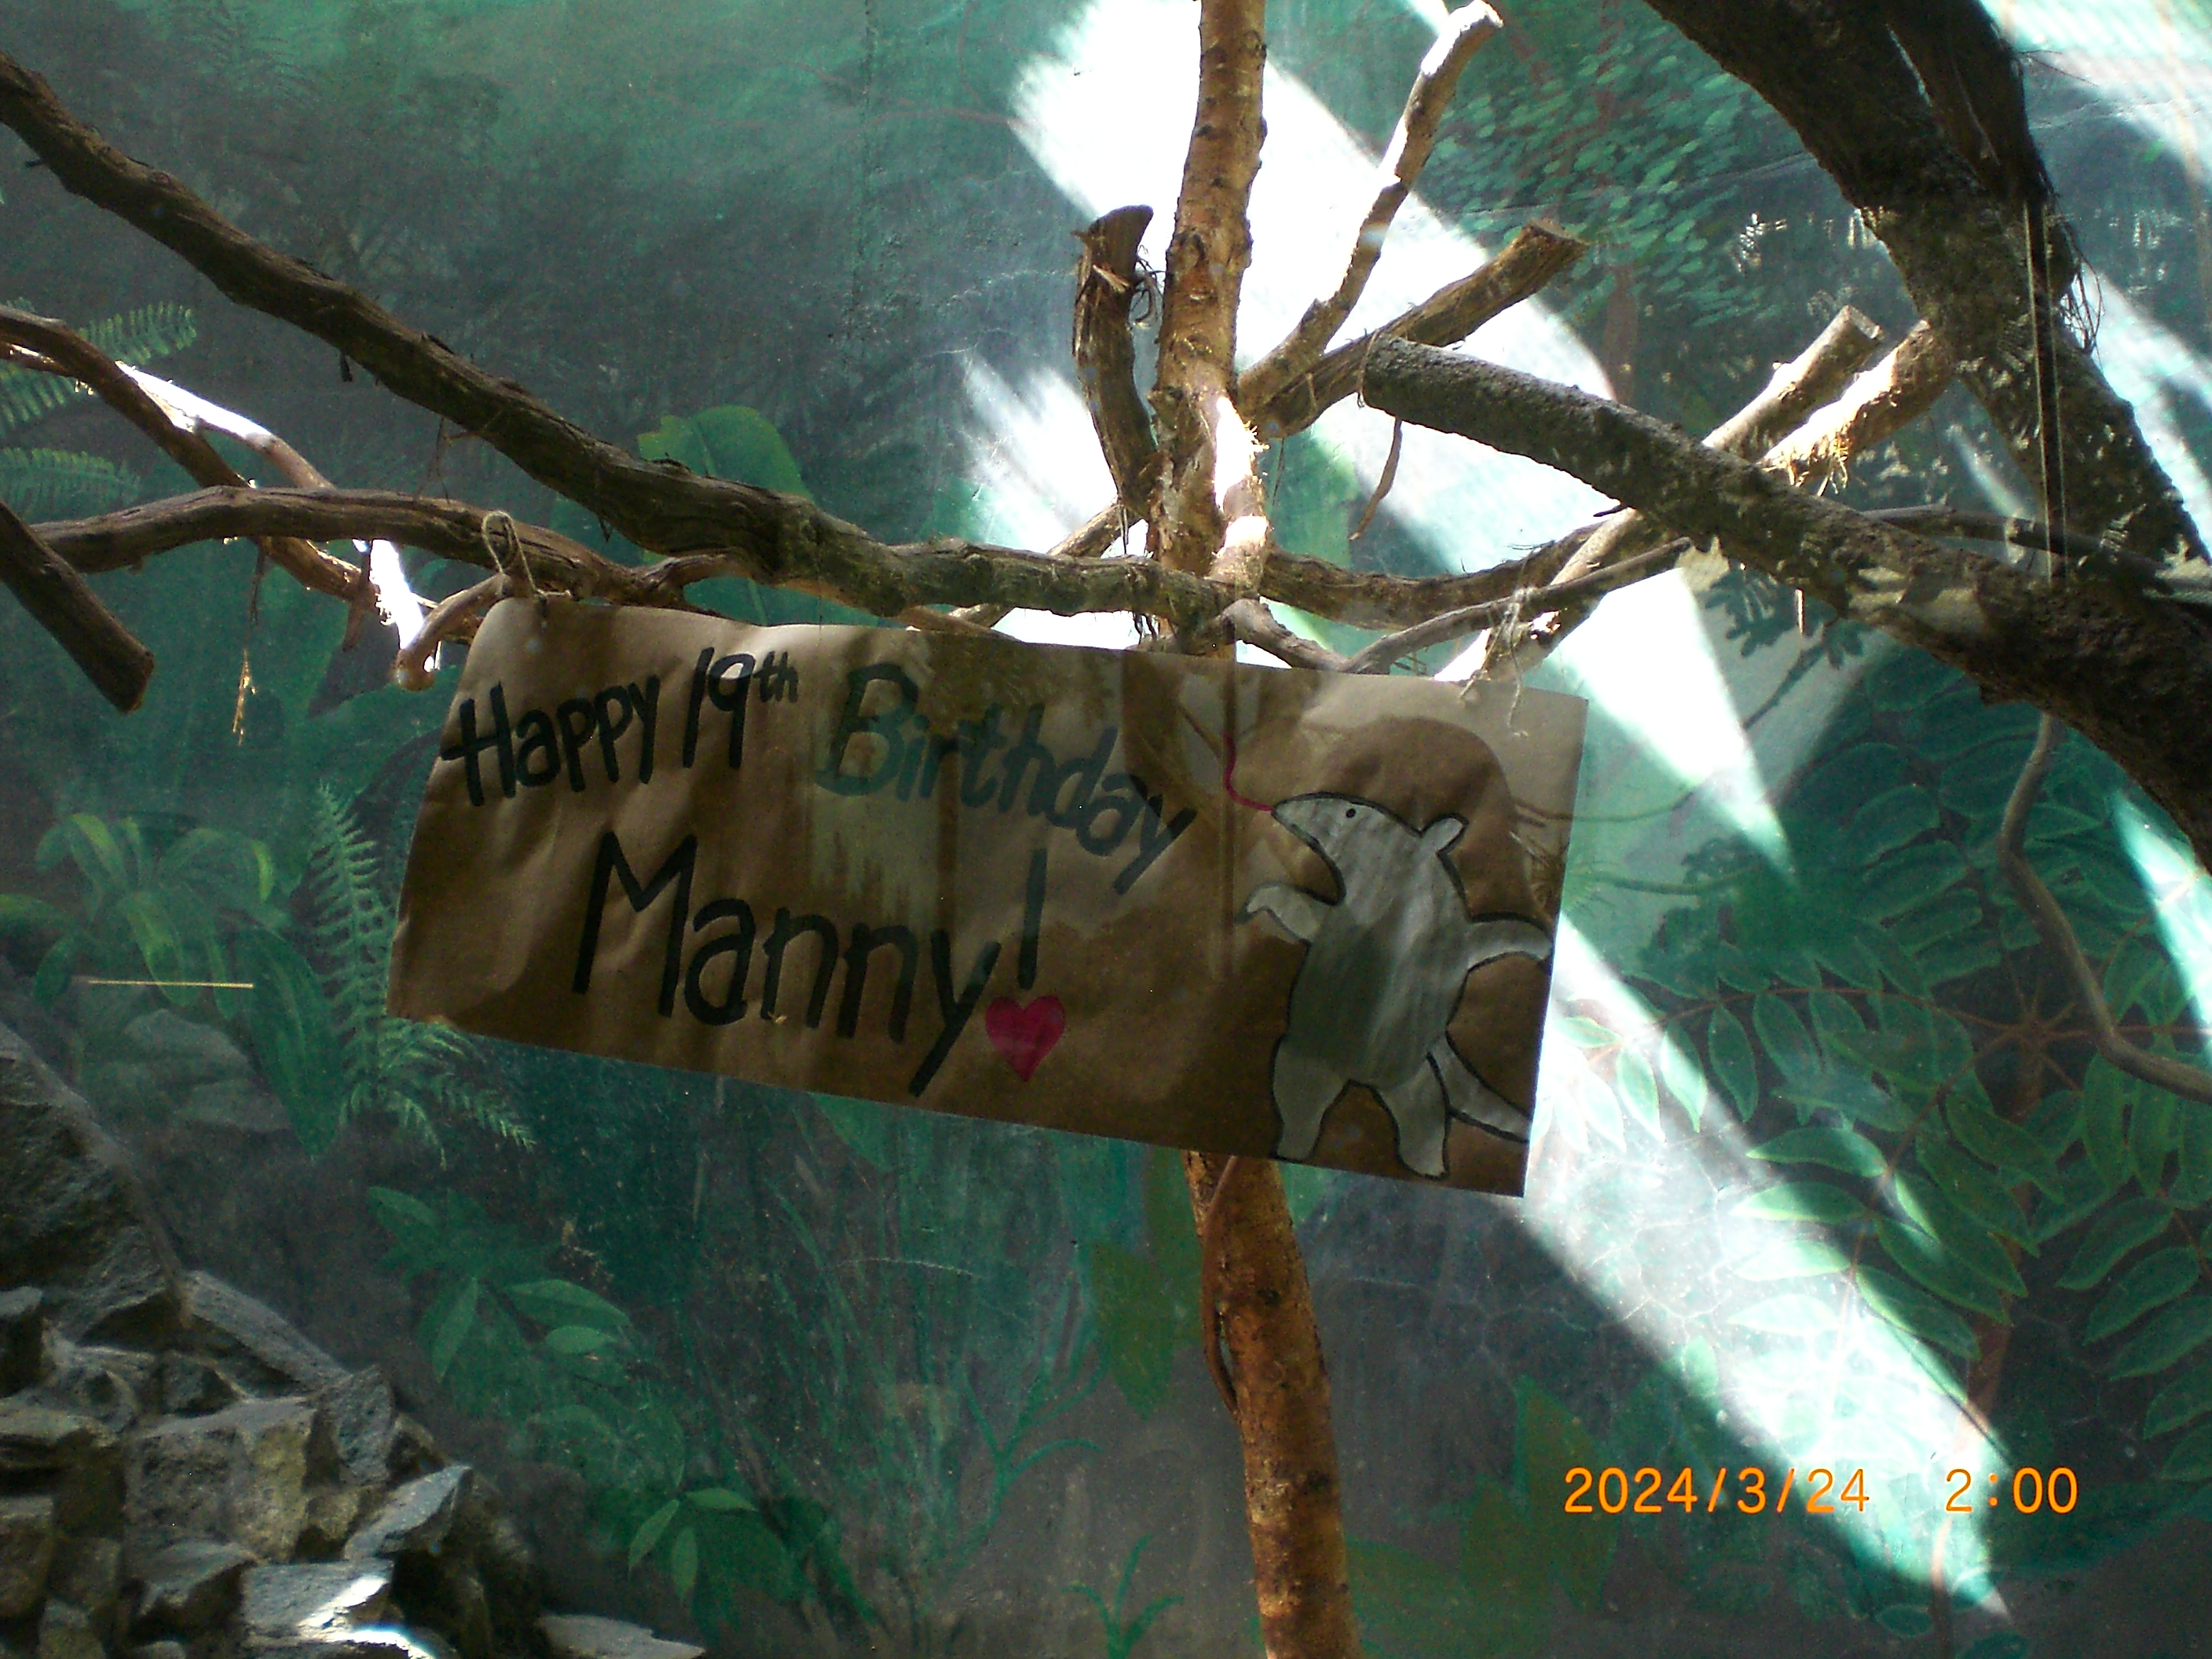 Happy 19th Birthday
Manny!
2024/3/24 2:00